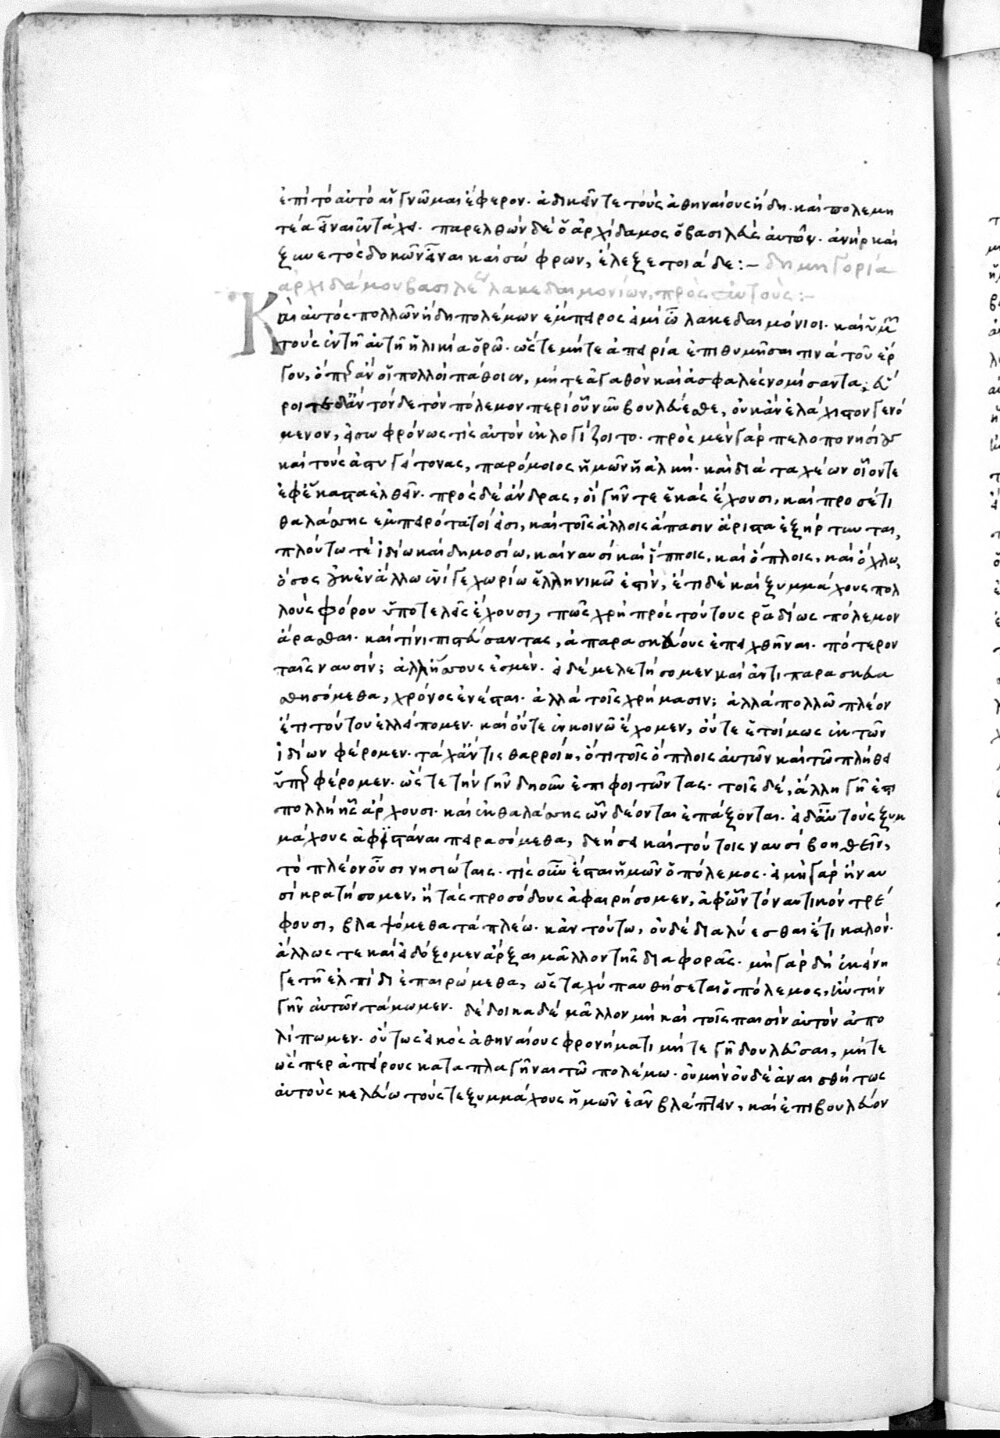 ἐπὶ τὸ αὐτὸ αἱ γνῶμαι ἔφερον· ἀδικεῖν τε τοὺς ἀθηναίους ἤδη· καὶ πολεμη
τέα εἶναι ἐν τάχει· παρελθὼν δὲ ὁ ἀρχίδαμος ὁ βασιλεὺς αὐτῶν· ἀνὴρ καὶ
ξυνετὸς δοκῶν εἶναι καὶ σώφρων, ἔλεξε τοιάδε :– δημηγορία
ἀρχιδάμου βασιλέως λακεδαιμονίων, πρὸς αὐτούς :–
Καὶ αὐτὸς πολλῶν ἤδη πολέμων ἔμπειρός εἰμι ὦ λακεδαιμόνιοι· καὶ ὑμῶν
τοὺς ἐν τῆ αὐτῆ ἡλικία ὁρῶ· ὥστε μήτε ἀπειρία ἐπιθυμῆσαι τινὰ τοῦ ἔρ
γου, ὅπερ ἂν οἱ πολλοὶ πάθοιεν, μήτε ἀγαθὸν καὶ ἀσφαλὲς νομίσαντα· εὕ
ροιτε δ' ἂν τόνδε τὸν πόλεμον περὶ οὗ νῦν βουλεύεσθε, οὐκ ἂν ἐλάχιστον γενό
μενον, εἰ σωφρόνως τις αὐτὸν ἐκλογίζοιτο· πρὸς μὲν γὰρ πελοπονησίους
καὶ τοὺς ἀστυγείτονας, παρόμοιος ἡμῶν ἡ ἀλκή· καὶ διὰ ταχέων οἷόντε
ἐφ' ἕκαστα ἐλθεῖν· πρὸς δὲ ἄνδρας, οἳ γῆν τε ἑκὰς ἔχουσι, καὶ προσέτι
θαλάσσης ἐμπειρότατοί εἰσι, καὶ τοῖς ἄλλοις ἅπασιν ἄριστα ἐξήρτυνται,
πλούτω τὲ ἰδίω καὶ δημοσίω, καὶ ναυσὶ καὶ ἵπποις, καὶ ὅπλοις, καὶ ὄχλω,
ὅσος οὐκ ἐν ἄλλω ἑνί γε χωρίω ἑλληνικῶ ἐστίν, ἔτι δὲ καὶ ξυμμάχους πολ
λοὺς φόρου ὑποτελεῖς ἔχουσι, πῶς χρὴ πρὸς τούτους ῥαδίως πόλεμον
ἄρασθαι· καὶ τίνι πιστεύσαντας, ἀπαρασκεύους ἐπειχθῆναι· πότερον
ταῖς ναυσίν; ἀλλ' ἥττους ἐσμέν· εἰ δὲ μελετήσομεν καὶ ἀντιπαρασκευα
σθησόμεθα, χρόνος ἐνέσται· ἀλλὰ τοῖς χρήμασιν; ἀλλὰ πολλῶ πλέον
ἔτι τούτου ἐλλείπομεν· καὶ οὔτε ἐν κοινῶ ἔχομεν, οὔτε ἑτοίμως ἐκ τῶν
ἰδίων φέρομεν· τάχ' ἄν τις θαρροίη, ὅτι τοῖς ὅπλοις αὐτῶν καὶ τῶ πλήθει
ὑπερφέρομεν· ὥστε τὴν γῆν δηοῦν ἐπιφοιτῶντας· τοῖς δὲ, ἄλλη γῆ ἐστι
πολλὴ ἧς ἄρχουσι· καὶ ἐκ θαλάσσης ὧν δέονται ἐπάξονται· εἰ δ' αὖ τοὺς ξυμ
μάχους ἀφιστάναι πειρασόμεθα, δεήσει καὶ τούτοις ναυσὶ βοηθεῖν,
τὸ πλέον οὖσι νησιώταις· τίς οὖν ἔσται ἡμῶν ὁ πόλεμος· εἰ μὴ γὰρ ἢ ναυ
σὶ κρατήσομεν, ἢ τὰς προσόδους ἀφαιρήσομεν, ἀφ' ὧν τὸ ναυτικὸν τρέ
φουσι, βλαψόμεθα τὰ πλείω· κἀν τούτω, οὐδὲ διαλύεσθαι ἔτι καλόν·
ἄλλως τε καὶ εἰ δόξομεν ἄρξαι μᾶλλον τῆς διαφορᾶς· μὴ γὰρ δὴ ἐκείνη
γε τῆ ἐλπίδι ἐπαιρώμεθα, ὡς ταχὺ παυθήσεται ὁ πόλεμος, ἢν τὴν
γῆν αὐτῶν τάμωμεν· δέδοικα δὲ μᾶλλον μὴ καὶ τοῖς παισὶν αὐτὸν ἀπο
λίπωμεν· οὕτως εἰκὸς ἀθηναίους φρονήματι μήτε γῆ δουλεῦσαι, μήτε
ὥσπερ ἀπείρους καταπλαγῆναι τῶ πολέμω· οὐ μὴν οὐδὲ ἀναισθήτως
αὐτοὺς κελεύω τούς τε ξυμμάχους ἡμῶν ἐᾶν βλάπτειν, καὶ ἐπιβουλεύον